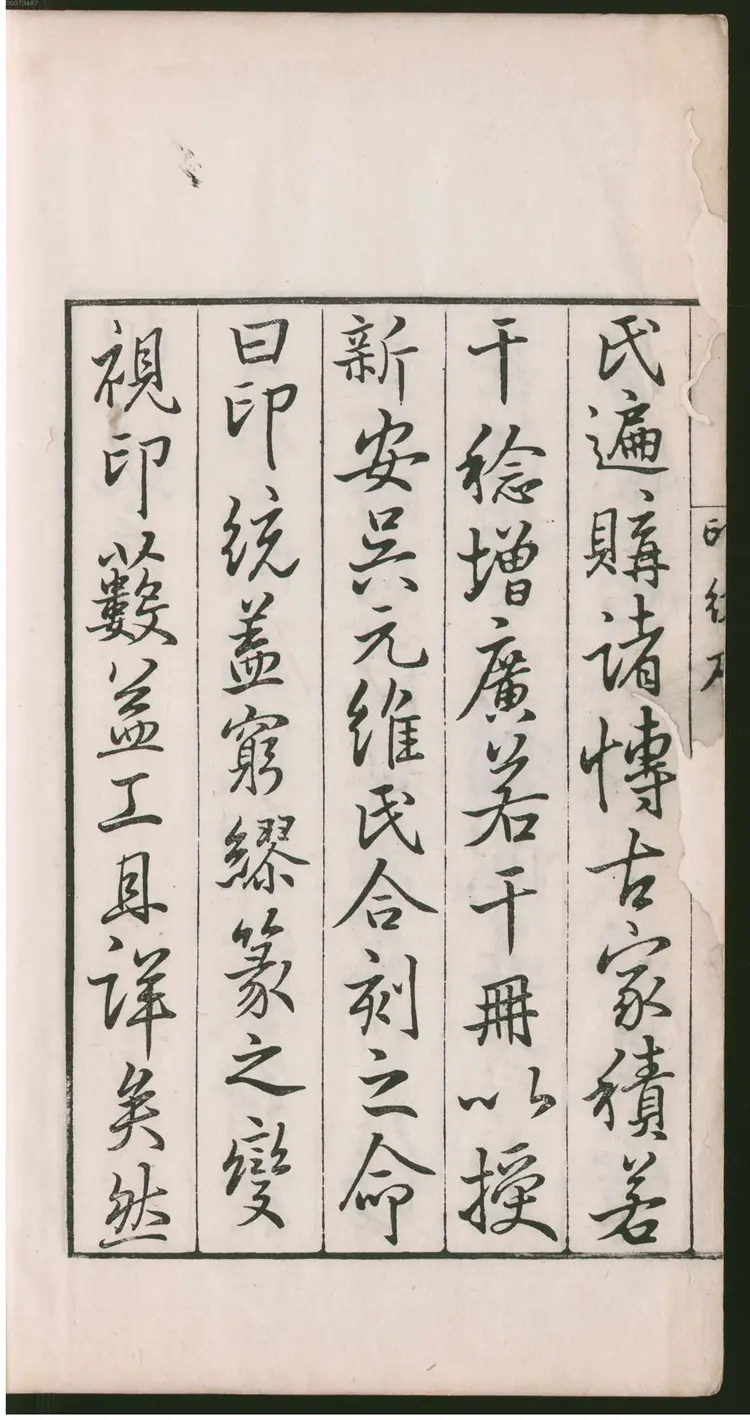 氏遍購諸博古家積若
干稔增廣若干冊以授
新安吳元維氏合刻之命
曰印統蓋窮繆篆之變
視印藪益工且詳矣然
00073467